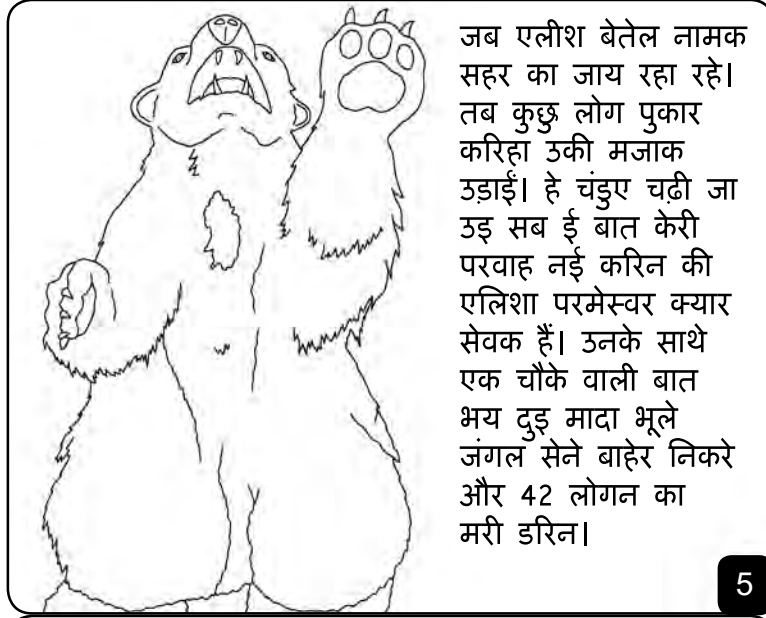 जब एलीश बेतेल नामक
सहर का जाय रहा रहे।
तब कुछु लोग पुकार
करिहा उकी मजाक
उड़ाईं। हे चंडुए चढ़ी जा
उइ सब ई बात केरी
परवाह नई करिन की
एलिशा परमेस्वर क्यार
सेवक हैं। उनके साथे
एक चौके वाली बात
भय दुइ मादा भूले
जंगल सेने बाहेर निकरे
और 42 लोगन का
मरी डरिन।
5